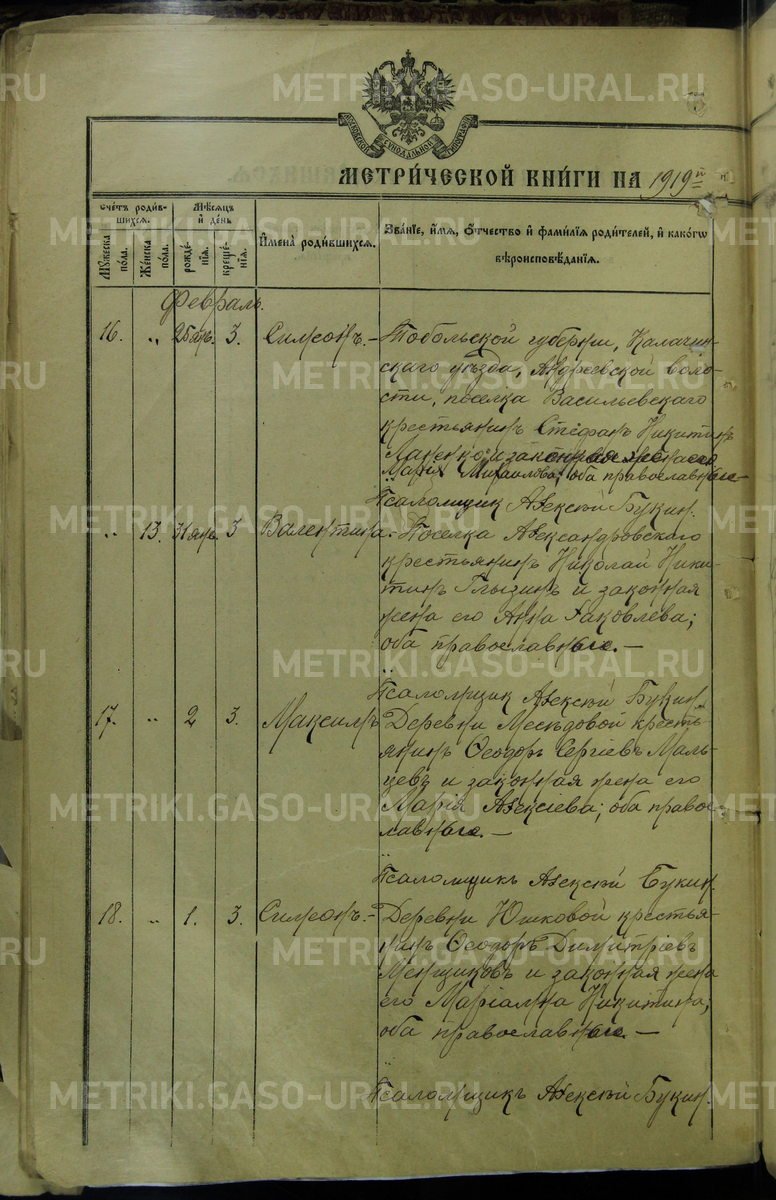 МЕТРИ́ЧЕСКОЙ КНИ́ГИ НА 1919й
Сче́тъ роди́в-
шихсѧ.
Му́жеска
по́ла.
Же́нска
по́ла.
Мѣ́сѧцъ
и҆ де́нь
рожде́-
нїѧ.
креще́-
нїѧ.
И҆мена̀ роди́вшихсѧ.
Зва́нїе, и҆́мѧ, ѻ҆́тчество и҆ фами́лїѧ роди́телей, и҆ како́гѡ
вѣроисповѣ́данїѧ.
Февраль.
16. „ 25 янв. 3. Симеонъ.-
Тобольской губернии, Калачин-
скаго уѣзда, Андреевской воло-
сти, поселка Васильевскаго
крестьянинъ Стефанъ Никитинъ
и законная жена его
Марія Михаилова; оба православные-
Псаломщик Алексѣй Букин.
„ 13. 31 янв. 3 Валентина.
Поселка Александровскаго
крестьянинъ Николай Ники-
тинъ Глызинъ и законная
жена его Анна Яковлева;
оба православные. -
Псаломщик Алексѣй Букин.
17. „ 2 3. Максимъ
Деревни Месѣдовой кресть-
янинъ Ѳеодоръ Сергіевъ Маль-
цевъ и законная жена его
Марія Алексіева; оба право-
славные. -
Псаломщикъ Алексѣй Букин.
18. „ 1. 3. Симеонъ.-
Деревни Юшковой крестья-
нинъ Ѳеодоръ Димитріевъ
Менщиковъ и законная жена
его Маріамна Никитина;
оба православные. -
Псаломщикъ Алексѣй Букин.
METRIKI.GASO-URAL.RU